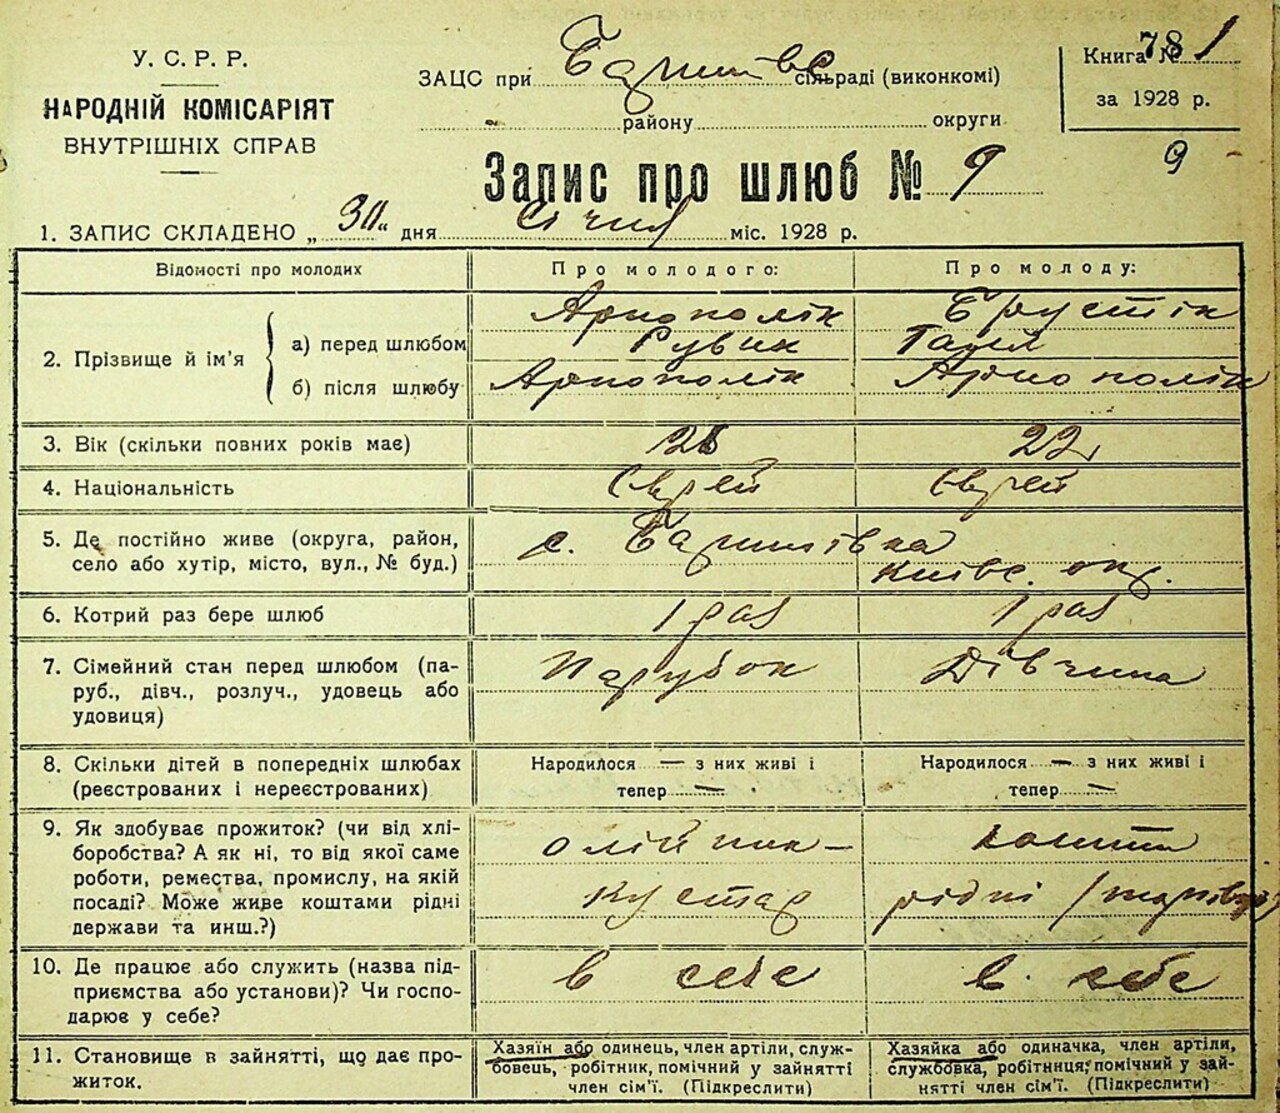 У. С. Р. Р.
НАРОДНІЙ КОМІСАРІЯТ
ВНУТРІШНІХ СПРАВ
ЗАЦС при сільраді (виконкомі)
району округи
Книга № 781
за 1928 р.
9
Запис про шлюб № 9
1. ЗАПИС СКЛАДЕНО „30" дня січня міс. 1928 р.
Відомості про молодих
Про молодого:
Про молоду:
2. Прізвище й ім'я
а) перед шлюбом
Арнополік Брустік
Рувин
б) після шлюбу
Арнополік Арнополік
3. Вік (скільки повних років має)
22
4. Національність
Єврей Єврей
5. Де постійно живе (округа, район,
село або хутір, місто, вул., № буд.)
с. Баришівка
Київс. окр.
6. Котрий раз бере шлюб
1 раз 1 раз
7. Сімейний стан перед шлюбом (па-
руб., дівч., розлуч., удовець або
удовиця)
Парубок Дівчина
8. Скільки дітей в попередніх шлюбах
(реєстрованих і нереєстрованих)
Народилося — з них живі і
тепер —
Народилося — з них живі і
тепер —
9. Як здобуває прожиток? (чи від хлі-
боробства? А як ні, то від якої саме
роботи, ремества, промислу, на якій
посаді? Може живе коштами рідні
держави та инш.?)
олійник —
кустар
кошти
рідні
10. Де працює або служить (назва під-
приємства або установи)? Чи госпо-
дарює у себе?
в себе в себе
11. Становище в зайнятті, що дає про-
житок.
Хазяїн або одинець, член артіли, служ-
бовець, робітник, помічний у зайнятті
член сім'ї. (Підкреслити)
Хазяйка або одиначка, член артіли,
службовка, робітниця, помічний у зай-
нятті член сім'ї. (Підкреслити)